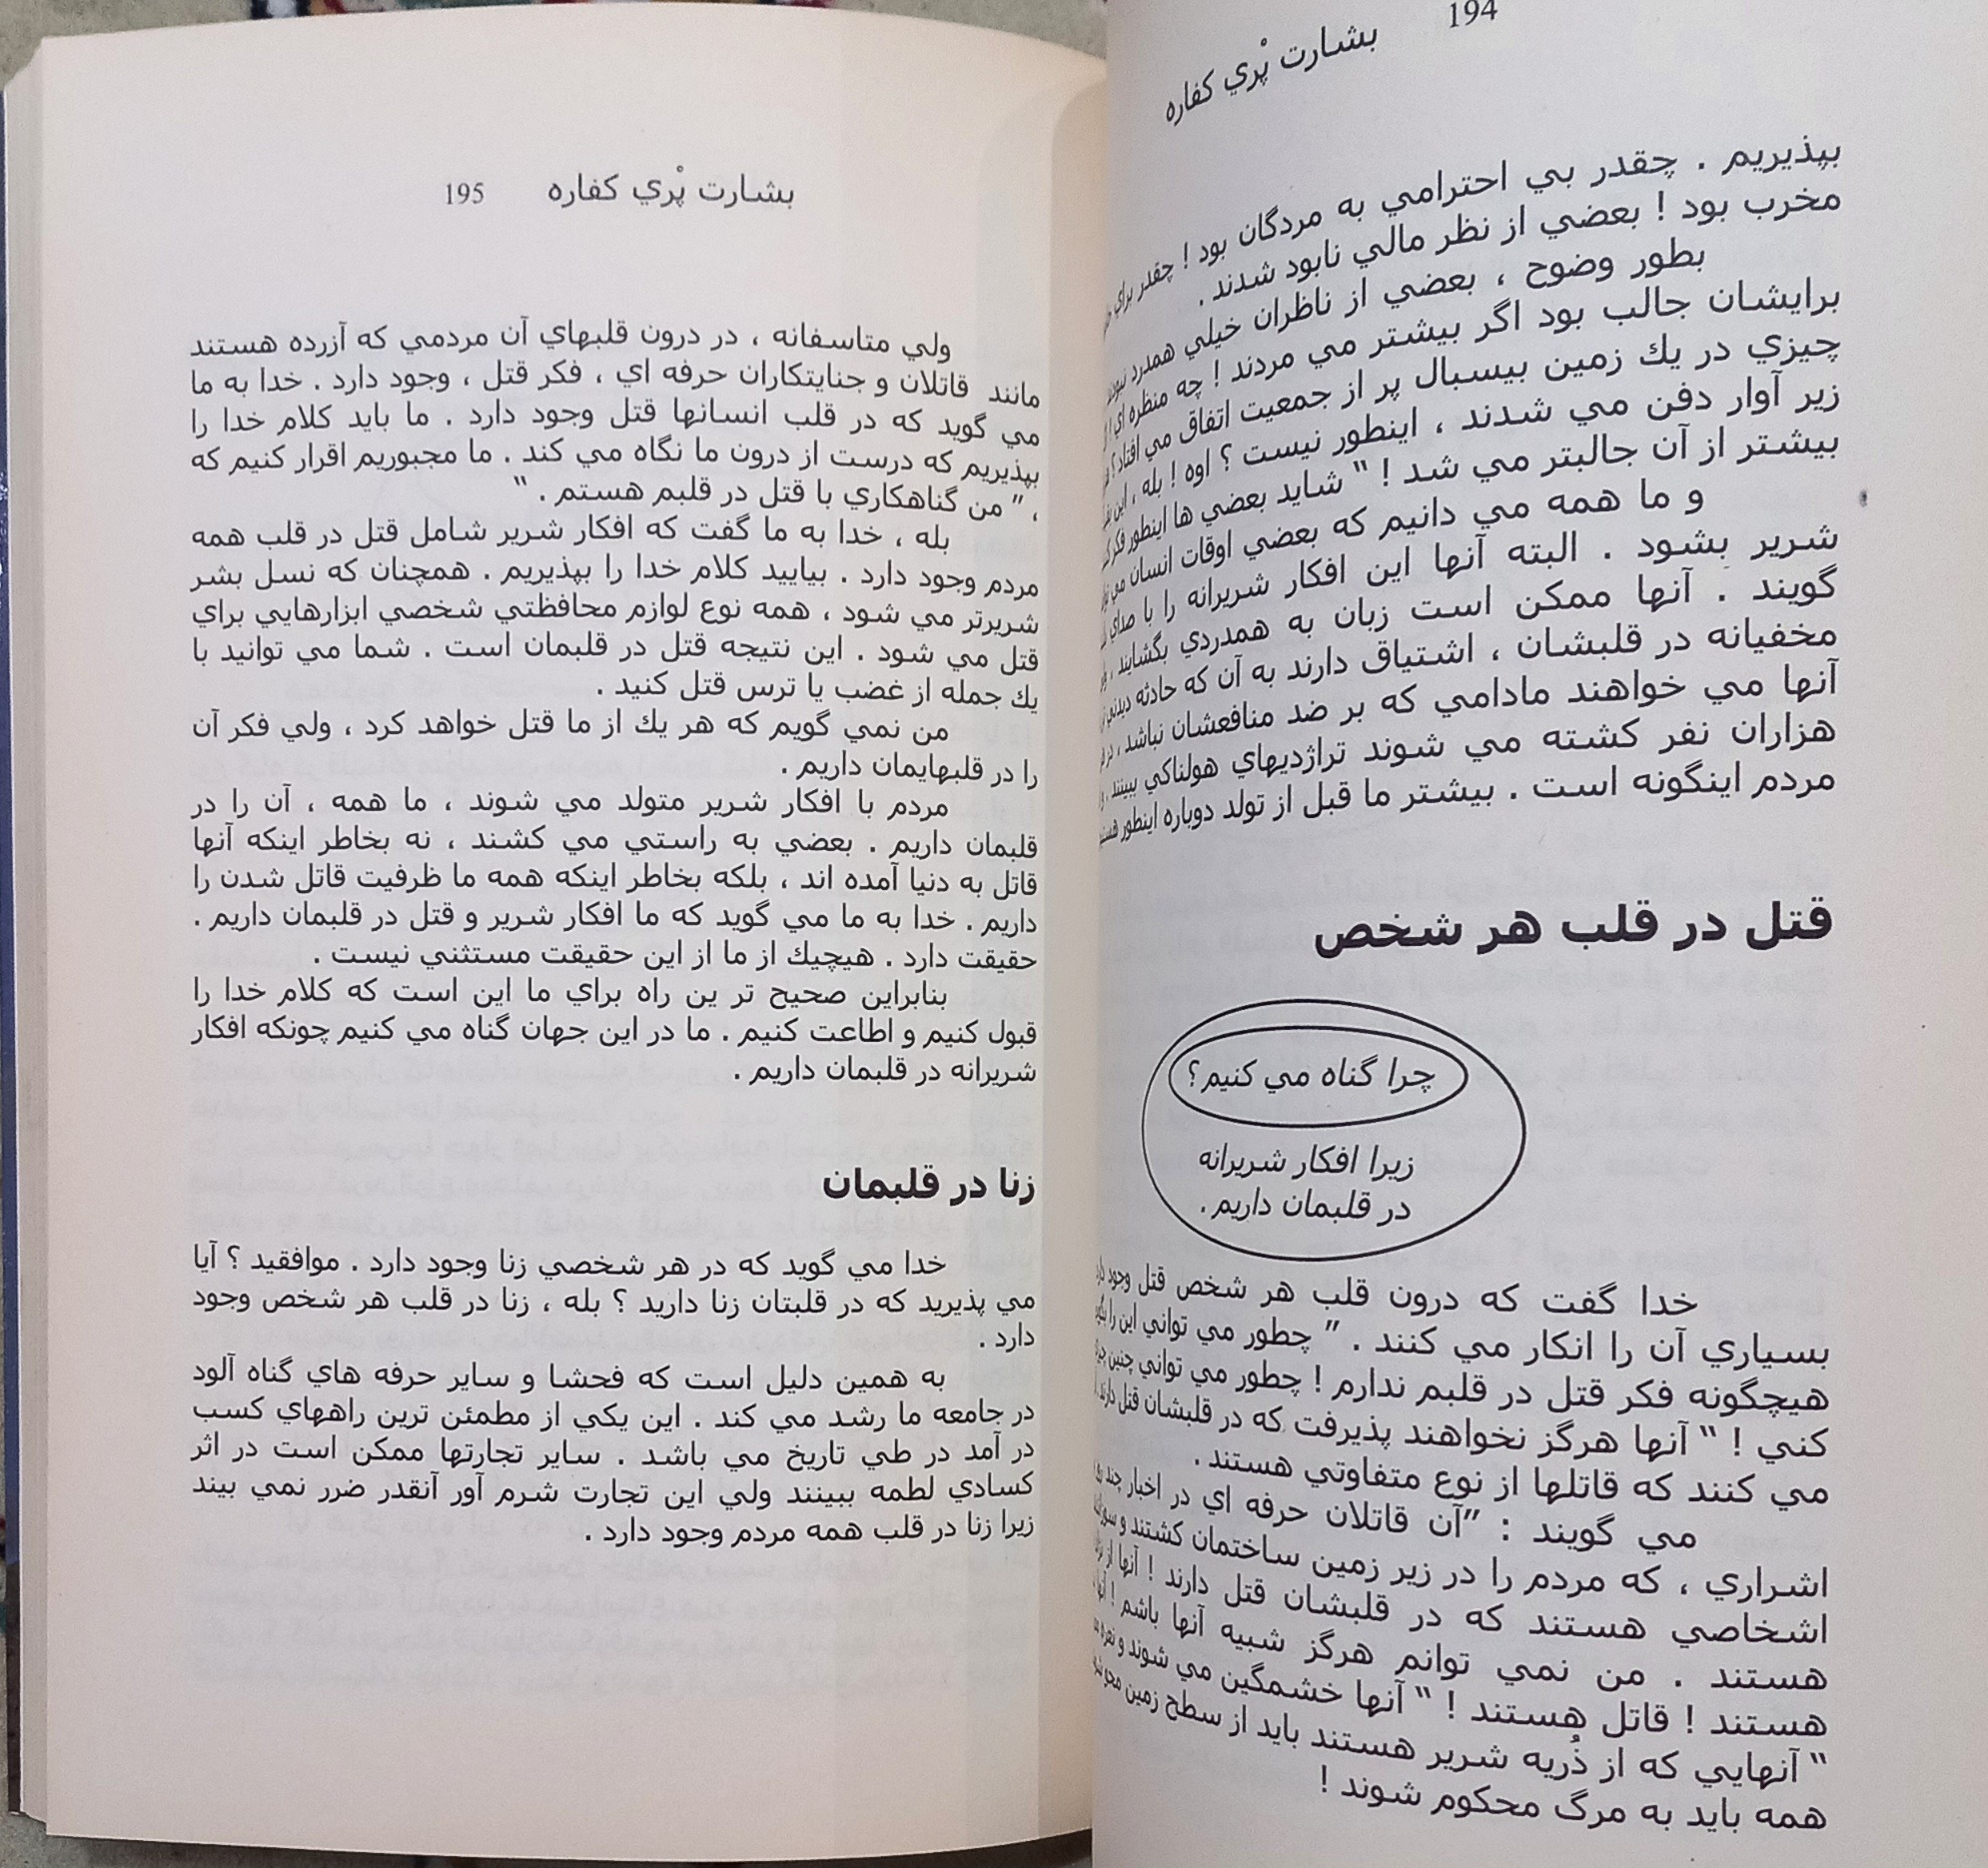 194
بشارت پْري كفاره
بپذيريم . چقدر بي احترامي به مردگان بود ! چقدر براي
مخرب بود ! بعضي از نظر مالي نابود شدند .
بطور وضوح ، بعضي از ناظران خيلي همدرد نبودند
برايشان جالب بود اگر بيشتر مي مردند ! چه منظره اي !
چيزي در يك زمين بيسبال پر از جمعيت اتفاق مي افتاد ؟
زير آوار دفن مي شدند ، اينطور نيست ؟ اوه ! بله ، اين
بيشتر از آن جالبتر مي شد ! “ شايد بعضي ها اينطور فكر
و ما همه مي دانيم كه بعضي اوقات انسان مي
شرير بشود . البته آنها اين افكار شريرانه را با صداي
گويند . آنها ممكن است زبان به همدردي بگشايند ،
مخفيانه در قلبشان ، اشتياق دارند به آن كه حادثه ديدني
آنها مي خواهند مادامي كه بر ضد منافعشان نباشد ، در
هزاران نفر كشته مي شوند تراژديهاي هولناكي ببينند ،
مردم اينگونه است . بيشتر ما قبل از تولد دوباره اينطور
قتل در قلب هر شخص
چرا گناه مي كنيم؟
زيرا افكار شريرانه
در قلبمان داريم .
خدا گفت كه درون قلب هر شخص قتل وجود
بسياري آن را انكار مي كنند . ” چطور مي تواني اين را
هيچگونه فكر قتل در قلبم ندارم ! چطور مي تواني چنين
كني ! “ آنها هرگز نخواهند پذيرفت كه در قلبشان قتل دارند .
مي كنند كه قاتلها از نوع متفاوتي هستند .
مي گويند : ”آن قاتلان حرفه اي در اخبار چند
اشراري ، كه مردم را در زير زمين ساختمان كشتند و
اشخاصي هستند كه در قلبشان قتل دارند ! آنها از
هستند . من نمي توانم هرگز شبيه آنها باشم !
هستند ! قاتل هستند ! “ آنها خشمگين مي شوند و نعره
“ آنهايي كه از ذُريه شرير هستند بايد از سطح زمين محو
همه بايد به مرگ محكوم شوند !
بشارت پْري كفاره 195
ولي متاسفانه ، در درون قلبهاي آن مردمي كه آزرده هستند
مانند قاتلان و جنايتكاران حرفه اي ، فكر قتل ، وجود دارد . خدا به ما
مي گويد كه در قلب انسانها قتل وجود دارد . ما بايد كلام خدا را
بپذيريم كه درست از درون ما نگاه مي كند . ما مجبوريم اقرار كنيم كه
، ” من گناهكاري با قتل در قلبم هستم . “
بله ، خدا به ما گفت كه افكار شرير شامل قتل در قلب همه
مردم وجود دارد . بياييد كلام خدا را بپذيريم . همچنان كه نسل بشر
شريرتر مي شود ، همه نوع لوازم محافظتي شخصي ابزارهايي براي
قتل مي شود . اين نتيجه قتل در قلبمان است . شما مي توانيد با
يك جمله از غضب يا ترس قتل كنيد .
من نمي گويم كه هر يك از ما قتل خواهد كرد ، ولي فكر آن
را در قلبهايمان داريم .
مردم با افكار شرير متولد مي شوند ، ما همه ، آن را در
قلبمان داريم . بعضي به راستي مي كشند ، نه بخاطر اينكه آنها
قاتل به دنيا آمده اند ، بلكه بخاطر اينكه همه ما ظرفيت قاتل شدن را
داريم . خدا به ما مي گويد كه ما افكار شرير و قتل در قلبمان داريم .
حقيقت دارد . هيچيك از ما از اين حقيقت مستثني نيست .
بنابراين صحيح تر ين راه براي ما اين است كه كلام خدا را
قبول كنيم و اطاعت كنيم . ما در اين جهان گناه مي كنيم چونكه افكار
شريرانه در قلبمان داريم .
زنا در قلبمان
خدا مي گويد كه در هر شخصي زنا وجود دارد . موافقيد ؟ آيا
مي پذيريد كه در قلبتان زنا داريد ؟ بله ، زنا در قلب هر شخص وجود
دارد .
به همين دليل است كه فحشا و ساير حرفه هاي گناه آلود
در جامعه ما رشد مي كند . اين يكي از مطمئن ترين راههاي كسب
در آمد در طي تاريخ مي باشد . ساير تجارتها ممكن است در اثر
كسادي لطمه ببينند ولي اين تجارت شرم آور آنقدر ضرر نمي بيند
زيرا زنا در قلب همه مردم وجود دارد .